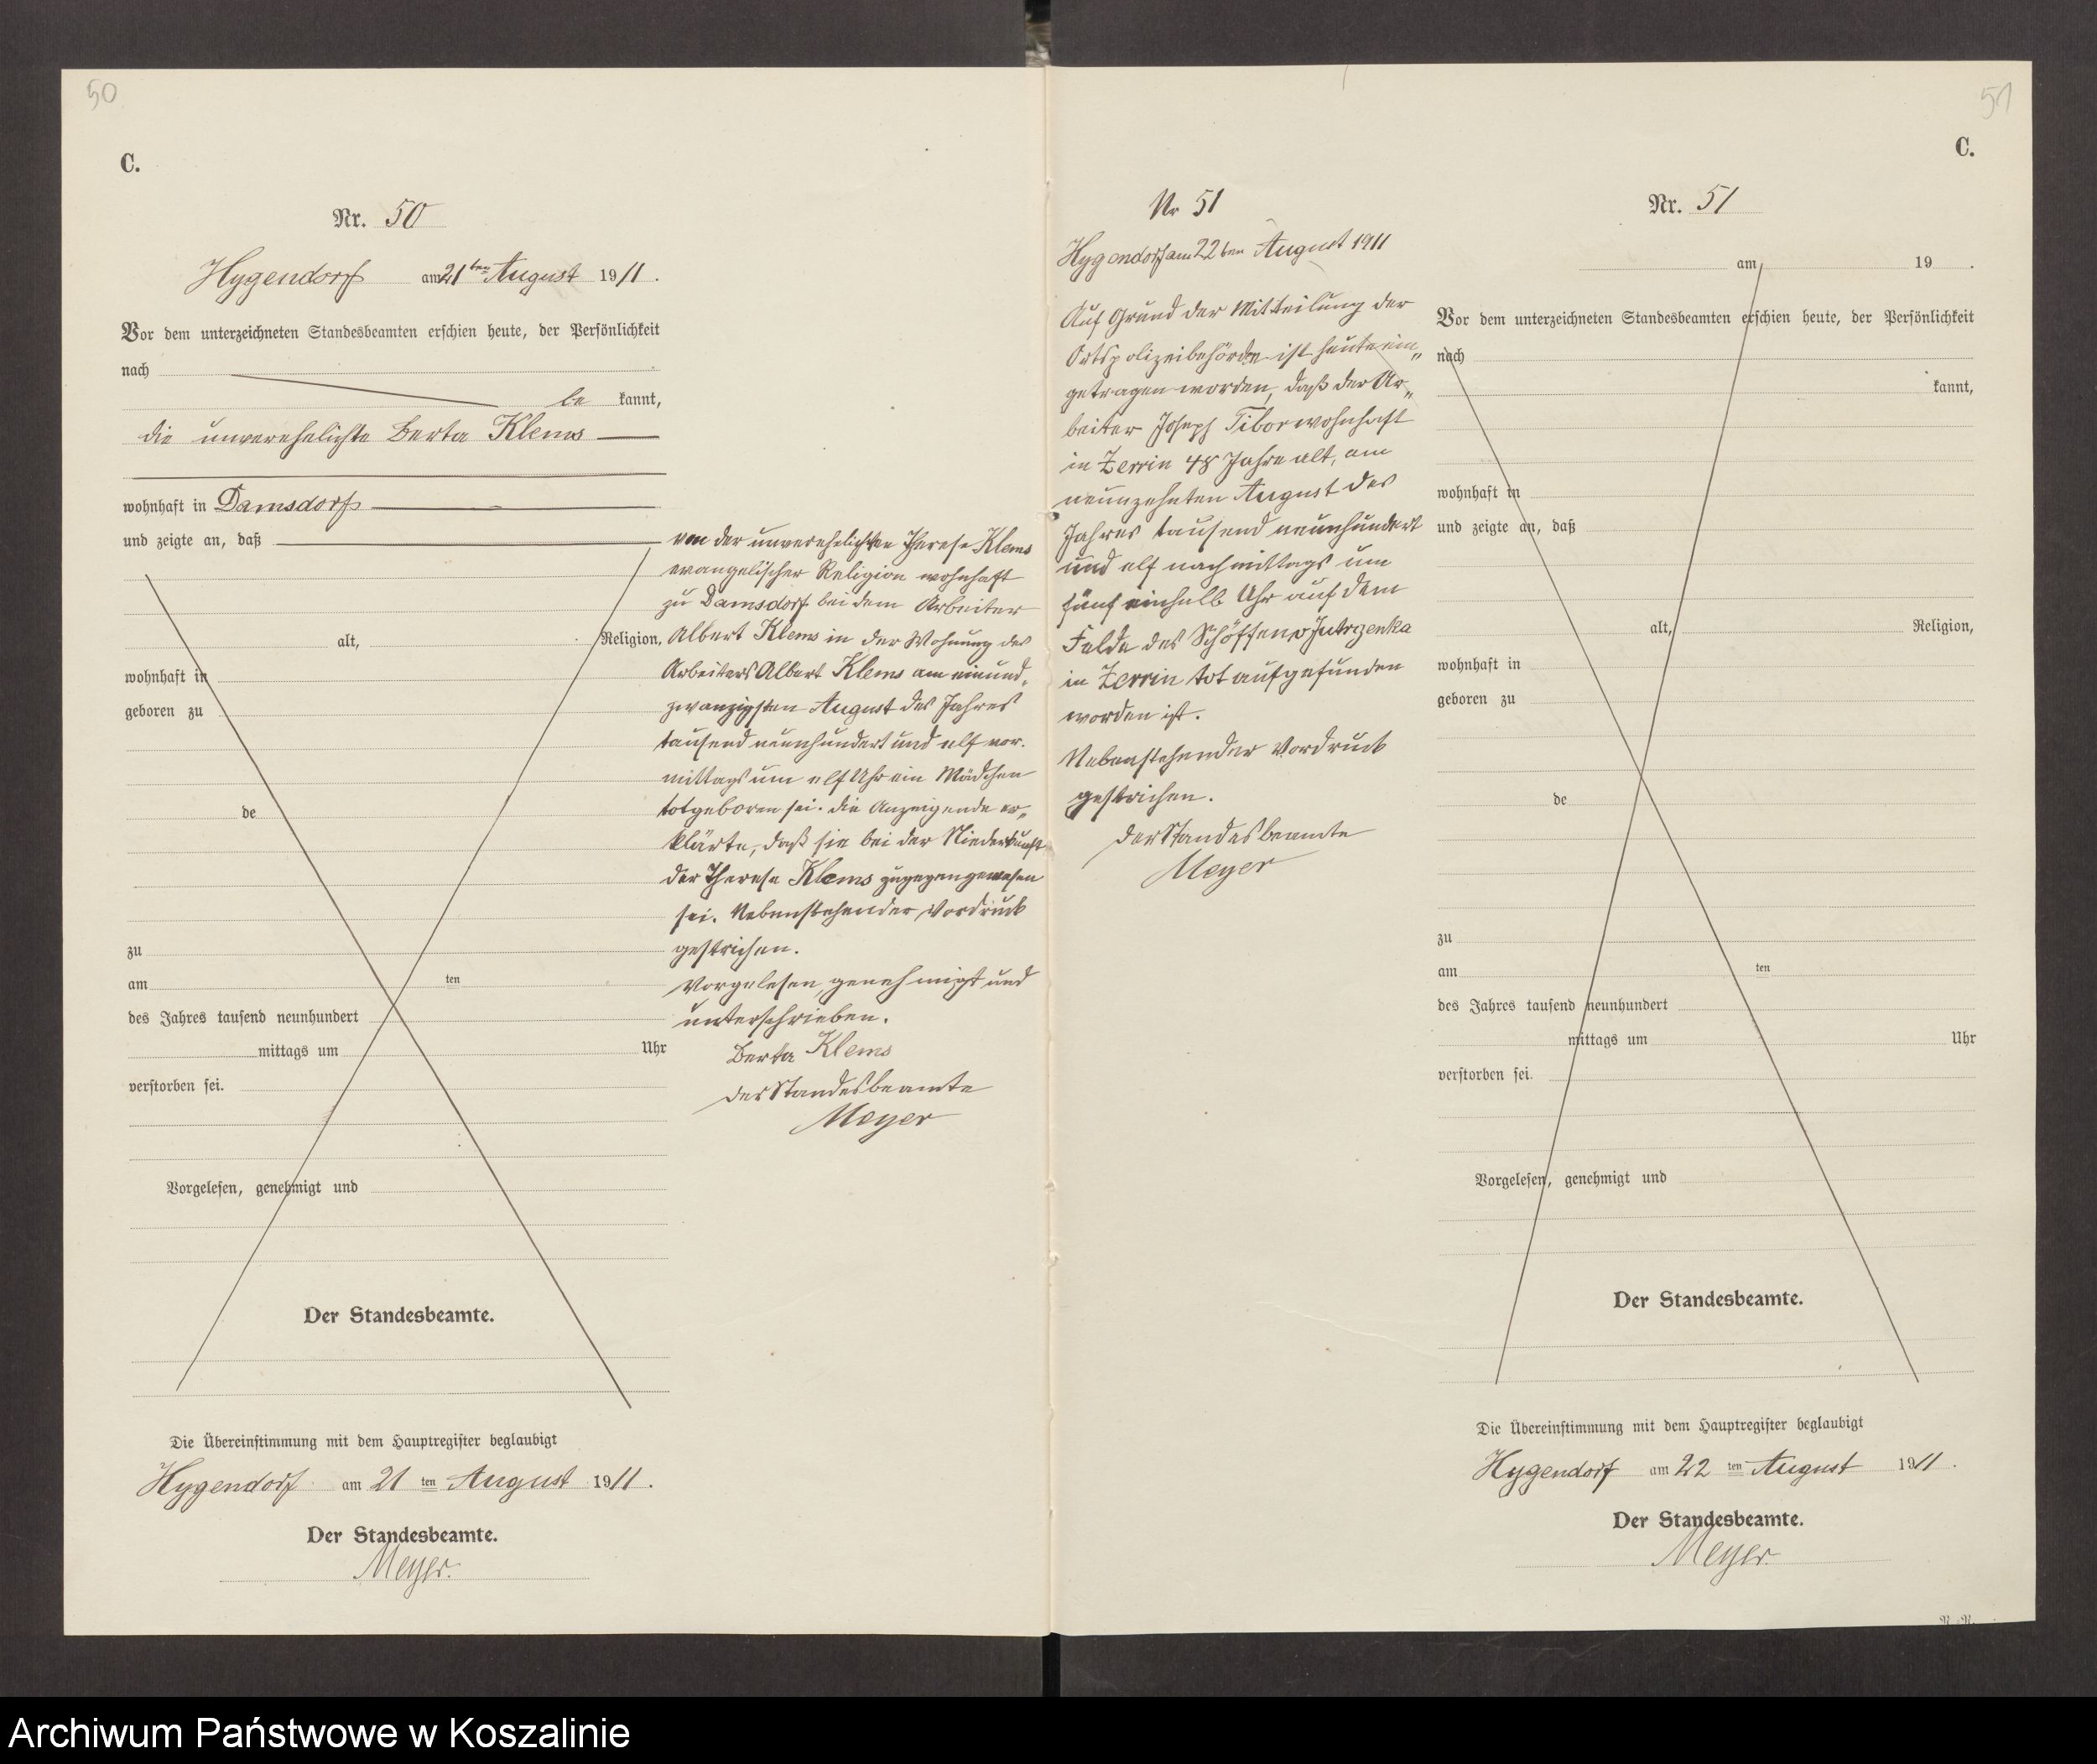 50
C.
Nr. 50
Hygendorf am 21ten August 1911.
Vor dem unterzeichneten Standesbeamten erschien heute, der Persönlichkeit
nach
be kannt,
die unverehelichte Berta Klems
wohnhaft in Damsdorf
und zeigte an, daß
alt, Religion,
wohnhaft in
geboren zu
de
zu
am ten
des Jahres tausend neunhundert
mittags um Uhr
verstorben sei.
Vorgelesen, genehmigt und
Der Standesbeamte.
Die Übereinstimmung mit dem Hauptregister beglaubigt
Hygendorf am 21 ten August 1911.
Der Standesbeamte.
Meyer.
von der unverehelichten Therese Klems
evangelischer Religion wohnhaft
zu Damsdorf bei dem Arbeiter
Albert Klems in der Wohnung des
Arbeiters Albert Klems am einund-
zwanzigsten August des Jahres
tausend neunhundert und elf vor-
mittags um elf Uhr ein Mädchen
totgeboren sei. die Anzeigende er-
klärte, daß sie bei der Niederkunft
der Therese Klems zugegen gewesen
sei. Nebenstehender Vordruck
gestrichen.
Vorgelesen, genehmigt und
unterschrieben.
Berta Klems
der Standesbeamte
Meyer
Nr 51
Hygendorf am 22ten August 1911
Auf Grund der Mitteilung der
Ortspolizeibehörde ist heute ein-
getragen worden, daß der Ar-
beiter Joseph Tibor wohnhaft
in Zerrin 48 Jahre alt, am
neunzehnten August des
Jahres tausend neunhundert
und elf nachmittags um
fünf einhalb Uhr auf dem
Felde des Schöffen v Jutrzenka
in Zerrin tot aufgefunden
worden ist.
Nebenstehender Vordruck
gestrichen.
der Standesbeamte
Meyer
51
C.
Nr. 51
am 19 .
Vor dem unterzeichneten Standesbeamten erschien heute, der Persönlichkeit
nach
kannt,
wohnhaft in
und zeigte an, daß
alt, Religion,
wohnhaft in
geboren zu
de
zu
am ten
des Jahres tausend neunhundert
mittags um Uhr
verstorben sei.
Vorgelesen, genehmigt und
Der Standesbeamte.
Die Übereinstimmung mit dem Hauptregister beglaubigt
Hygendorf am 22 ten August 1911.
Der Standesbeamte.
Meyer.
Archiwum Państwowe w Koszalinie